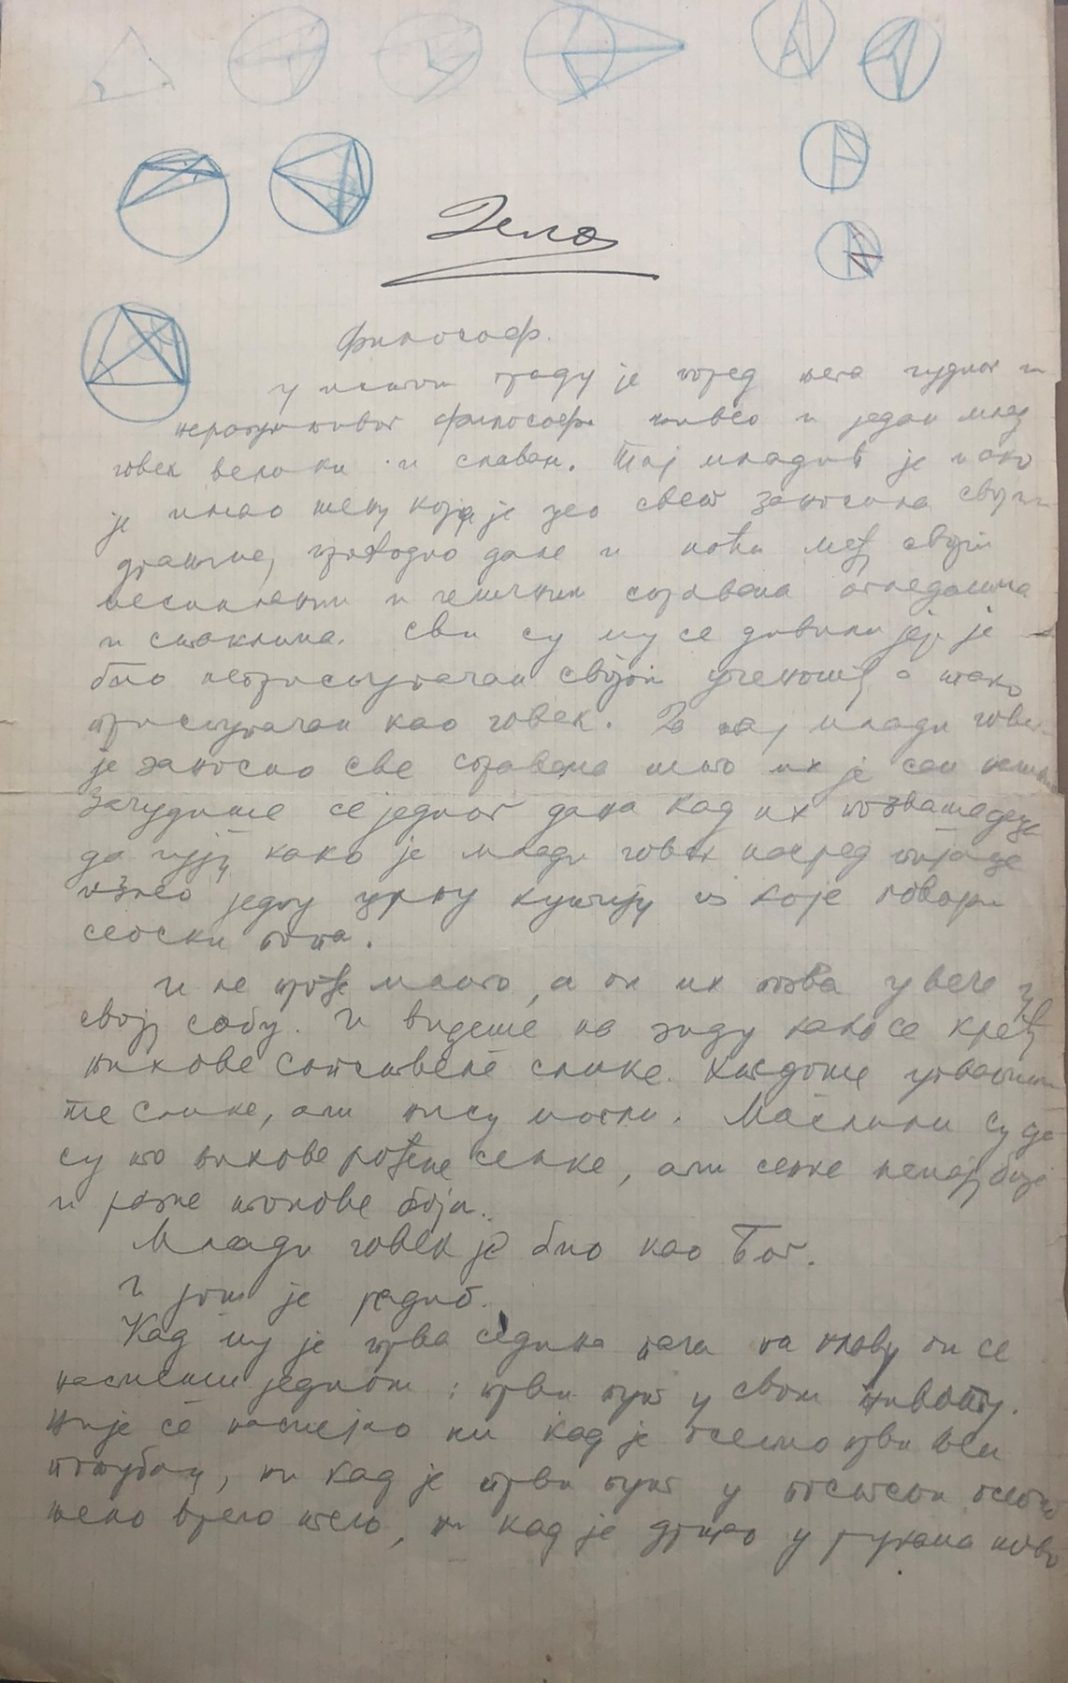 Дело
Философ.
У истом граду је поред тога чудног и
неразумљивог философа живео и један млад
човек велики и славан. Тај младић је иако
је имао жену која је цео свет заносила својим
дражима, проводио дане и ноћи међ својим
и чешчним справама огледалима
и стаклима. Сви су му се дивили јер је
био неприступачан својом ученошћу а тако
приступачан као човек. За тај млади човек
је заносио све справама што их је сам
Зачудише се једног дана кад их позваше деца
да чују како је млади човек насред пијаце
изнео једну црну кутију из које говори
сеоски попа.
И не прође много, а он их позва увече у
своју собу. И видеше на зиду како се крећу
њихове сопствене слике. Хтедоше ухватити
те слике, али нису могли. Мислили су да
су то њихове рођене сенке, али сенке немају боје
и разне тонове боја.
Млади човек је био као Бог.
И још је радио.
Кад му је прва седина пала на главу он се
насмеши једном: први пут у свом животу.
Није се насмејао ни кад је осетио први жен
пољубац, ни кад је први пут у постељи осетио
њено врело тело, ни кад је држао у рукама прво